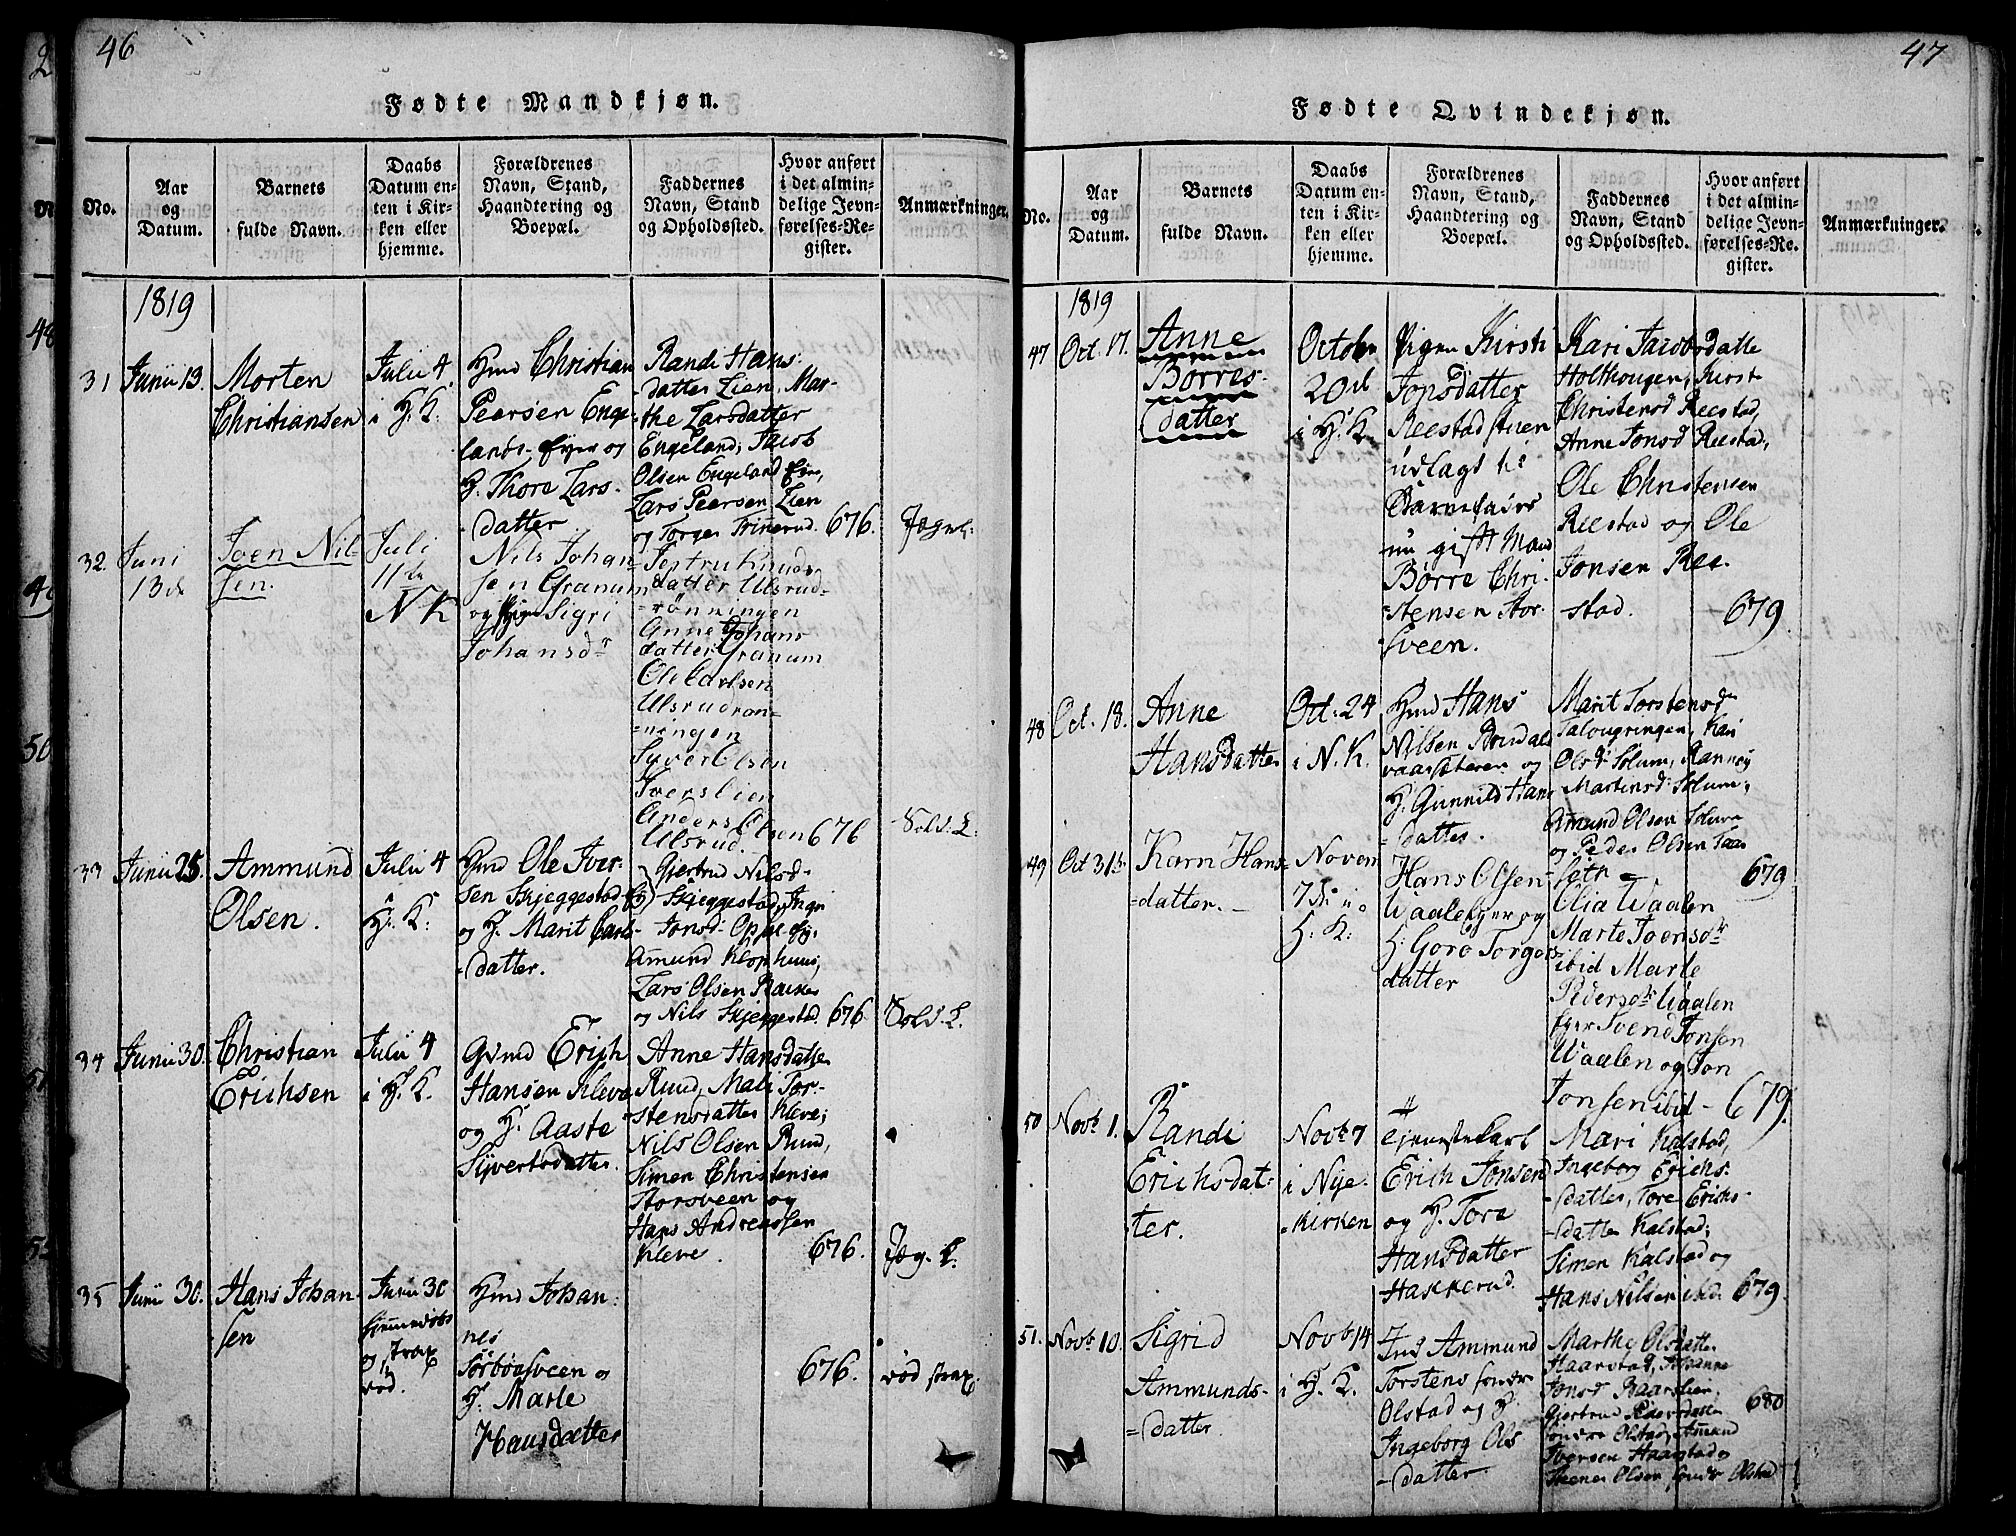 46
Fødte Mandkjøn.
No.
Aar
og
Datum.
Barnets
fulde Navn.
Daabs
Datum en-
ten i Kir-
ken eller
hjemme.
Forældrenes
Navn, Stand,
Haandtering og
Boepæl.
Faddernes
Navn, Stand
og Opholdssted.
Hvor anført
i det almin-
delige Jevn-
førelses-Re-
gister.
Anmærkninger.
1819
31
Junii 13.
Morten
Christiansen
Julii 4
i H. K.
Christian
Peersen Enge-
lands
H. Thore Lars-
datter
Randi Hans-
datter Lien, Mar-
the Larsdatter
Engeland, Jacob
Olsen Engeland
Lars Peersen Lien
og Torger Trinerud.
676.
32
Juni
13de
Joen Nil-
sen.
Juli
11te
N K
Nils Johan
sen Granum
og Sigri
Johansdr
Jertru Knuds
datter Ulsrud-
rönningen
Anne Johans
datter Granum
Ole Carlsen
Ulsrudrön-
ningen
Syver Olsen
Iverslien
Anders Olsen
Ulsrud.
676
Sold: L:
33
Junii 25.
Ammund
Olsen.
Julii 4
H. K:
Ole Iver-
sen Skjeggestad
og H. Marit Carls-
datter.
Gjertrud Nilsd-
Skjeggestad, Ingri
Jonsd-
Amund Klophuus,
Lars Olsen
og Nils Skjeggestad.
676
Sold. L.
34
Junii 30.
Christian
Erichsen
Julii 4
i H. K.
Erich
Hansen Kleve
og H. Aaste
Syvertsdatter.
Anne Hansdatter
Ruud, Mali Tor-
stensdatter Kleve;
Nils Olsen Ruud,
Simen Christensen
Storsveen og
Hans Andreassen
Kleve.
676.
Jæg. C.
35
Junii 30.
Hans Johan-
sen
Junii 30
hjemmedöbt
og strax
död.
Johan-
nes
Sørbøesveen og
H. Marte
Hansdatter
676.
död strax.
47
Fødte Qvindekjøn.
No.
Aar
og
Datum.
Barnets
fulde Navn.
Daabs
Datum en-
ten i Kir-
ken eller
hjemme.
Forældrenes
Navn, Stand,
Haandtering og
Boepæl.
Faddernes
Navn, Stand
og Opholdssted.
Hvor anført
i det almin-
delige Jevn-
førelses-Re-
gister.
Anmærkninger.
1819
47
Oct. 17.
Anne
Børres-
datter
October
i H. K.
Pigen Kirsti
Jonsdatter
Reestadstuen
udlagt til
Barnefader
nu gift Mand
Børre Chri-
stensen Stor-
sveen.
Kari Jacobsdatte
Holthougen,
Christensd Reestad,
Anne Jonsd Reestad,
Ole Christensen
Reestad og Ole
Jonsen Ree-
stad.
679.
48
Oct. 18.
Anne
Hansdatter
Oct. 24
i N. K.
Hans
Nilsen
og
H. Gunnild Hans
datter.
Marit Torstensdr
Kari
Olsd: Solum,
Martinsd: Solum,
Amund Olsen Solum
og Peder Olsen Taas
seth
679.
49
Oct 31te
Karn Hans-
datter.
Novem
7de i
H. K:
Hans Olsen
Waalen og
H: Goro Torgers
datter
Elia Waalen
Marte Joensdr
ibid Marte
Pedersdr Waalen
Svend Jonsen
Waalen og Jon
Jonsen ibid
679.
50
Novb. 1.
Randi
Erichsdat-
ter.
Novb. 7
i Nye-
kirken
Tjenestekarl
Erich Jonsen
og H. Tore
Hansdatter
Hakkerud.
Mari Kalstad,
Ingeborg Erichs-
datter, Tore Erichs-
datter Kalstad;
Simen Kalstad og
Hans Nilsen ibid.
679.
51.
Novb. 10.
Sigrid
Ammunds-
datter.
Novb. 14
i H. K.
Ammund
Torstens søndre
Olstad og H.
Ingeborg Ols
datter.
Marthe Olsdatter
Haarstad, Johanne
Jonsd
Gjertrud Pedersdatter
søndre Olstad, Ammund
Iversen Haarstad og
Olsen søndr Olstad
680